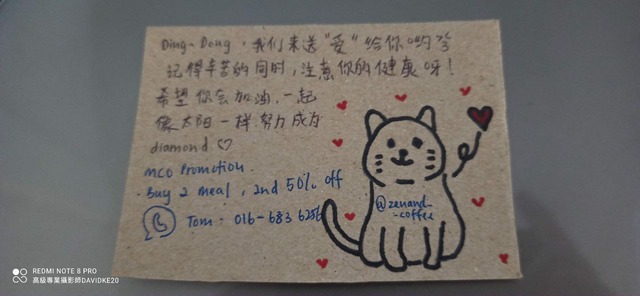 Ding-Dong，我们来送“爱”给你哟
记得辛苦的同时，注意你的健康呀！
希望你会加油，一起
像太阳一样努力成为
diamond ♡
MCO Promotion.
- Buy 2 meal, 2nd 50% off
Tom: 016-683 6256
@zenand_
-coffee
REDMI NOTE 8 PRO
高級專業攝影師DAVIDKE20